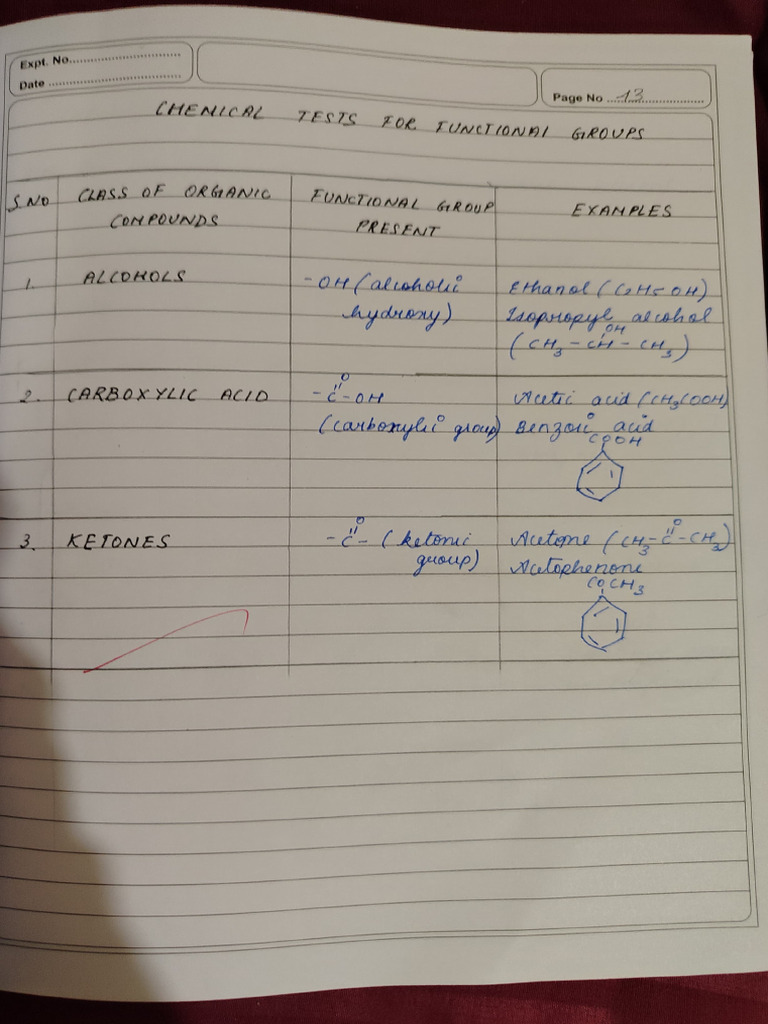 Expt. No.
Date
Page No 13
CHEMICAL TESTS FOR FUNCTIONAL GROUPS
S.NO CLASS OF ORGANIC COMPOUNDS FUNCTIONAL GROUP PRESENT EXAMPLES
1. ALCOHOLS
-OH (alcoholic
hydroxy)
Ethanol (C2H5OH)
Isopropyl alcohol
OH
(CH3 - CH - CH3)
2. CARBOXYLIC ACID
O
-C-OH
(carboxylic group)
Acetic acid (CH3COOH)
Benzoic acid
COOH
3. KETONES
O
-C- (ketonic
group)
O
Acetone (CH3-C-CH3)
Acetophenone
COCH3